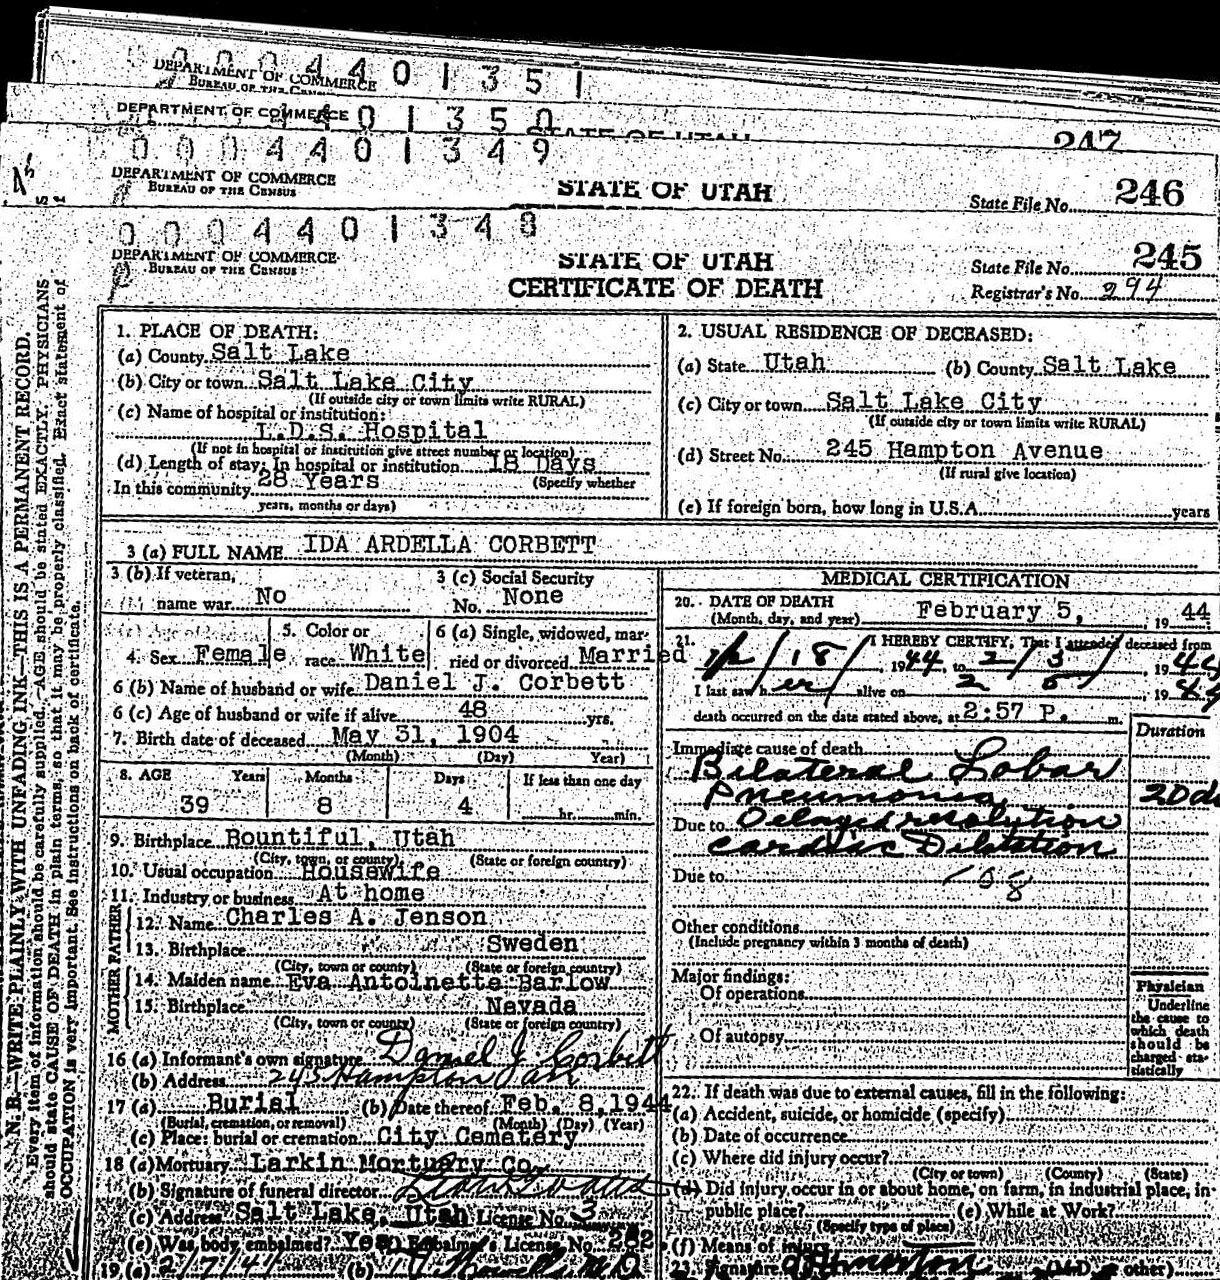 0004401351
DEPARTMENT OF COMMERCE
BUREAU OF THE CENSUS
DEPARTMENT OF COMMERCE
4401350
STATE OF UTAH
247
0004401349
DEPARTMENT OF COMMERCE
BUREAU OF THE CENSUS
STATE OF UTAH
State File No. 246
0004401348
DEPARTMENT OF COMMERCE
BUREAU OF THE CENSUS
STATE OF UTAH
CERTIFICATE OF DEATH
State File No. 245
Registrar's No. 294
N. B.—WRITE PLAINLY WITH UNFADING INK—THIS IS A PERMANENT RECORD.
Every item of information should be carefully supplied. AGE should be stated EXACTLY. PHYSICIANS
should state CAUSE OF DEATH in plain terms, so that it may be properly classified. Exact statement of
OCCUPATION is very important. See instructions on back of certificate.
1. PLACE OF DEATH:
(a) County Salt Lake
(b) City or town Salt Lake City
(If outside city or town limits write RURAL)
(c) Name of hospital or institution:
L.D.S. Hospital
(If not in hospital or institution give street number or location)
(d) Length of stay: In hospital or institution 18 Days
In this community 28 Years (Specify whether
years, months or days)
2. USUAL RESIDENCE OF DECEASED:
(a) State Utah (b) County Salt Lake
(c) City or town Salt Lake City
(If outside city or town limits write RURAL)
(d) Street No. 245 Hampton Avenue
(If rural give location)
(e) If foreign born, how long in U.S.A. years
3 (a) FULL NAME IDA ARDELLA CORBETT
3 (b) If veteran, name war No
3 (c) Social Security No. None
4. Sex Female
5. Color or race White
6 (a) Single, widowed, married or divorced Married
6 (b) Name of husband or wife Daniel J. Corbett
6 (c) Age of husband or wife if alive 48 yrs.
7. Birth date of deceased May 31, 1904
(Month) (Day) Year)
8. AGE Years Months Days If less than one day
39 8 4 hr. min.
9. Birthplace Bountiful, Utah
(City, town, or county) (State or foreign country)
10. Usual occupation Housewife
11. Industry or business At home
FATHER
12. Name Charles A. Jenson
13. Birthplace Sweden
(City, town or county) (State or foreign country)
MOTHER
14. Maiden name Eva Antoinette Barlow
15. Birthplace Nevada
(City, town or county) (State or foreign country)
16 (a) Informant's own signature Daniel J Corbett
(b) Address 245 Hampton
17 (a) Burial (b) Date thereof Feb. 8, 1944
(Burial, cremation, or removal) (Month) (Day) (Year)
(c) Place: burial or cremation City Cemetery
18 (a) Mortuary Larkin Mortuary Co.
(b) Signature of funeral director
(c) Address Salt Lake, Utah License No. 3
(e) Was body embalmed? Yes Embalmer License No. 262
19 (a) 2/7/44 (b) M.D.
MEDICAL CERTIFICATION
20. DATE OF DEATH
(Month, day, and year) February 5, 1944
21. I HEREBY CERTIFY, That I attended deceased from
18/ 1944 to 2/5/ 1944
I last saw her alive on 2 5 1944
death occurred on the date stated above, at 2:57 P. m.
Duration
Immediate cause of death
Bilateral Lobar
Pneumonia 20 d
Due to Delayed resolution
Cardiac Dilatation
Due to 108
Other conditions
(Include pregnancy within 3 months of death)
Major findings:
Of operations
Of autopsy
Physician
Underline
the cause to
which death
should be
charged sta-
tistically
22. If death was due to external causes, fill in the following:
(a) Accident, suicide, or homicide (specify)
(b) Date of occurrence
(c) Where did injury occur?
(City or town) (County) (State)
(d) Did injury occur in or about home, on farm, in industrial place, in
public place? (e) While at Work?
(Specify type of place)
(f) Means of injury
23. Signature (M.D. or other)